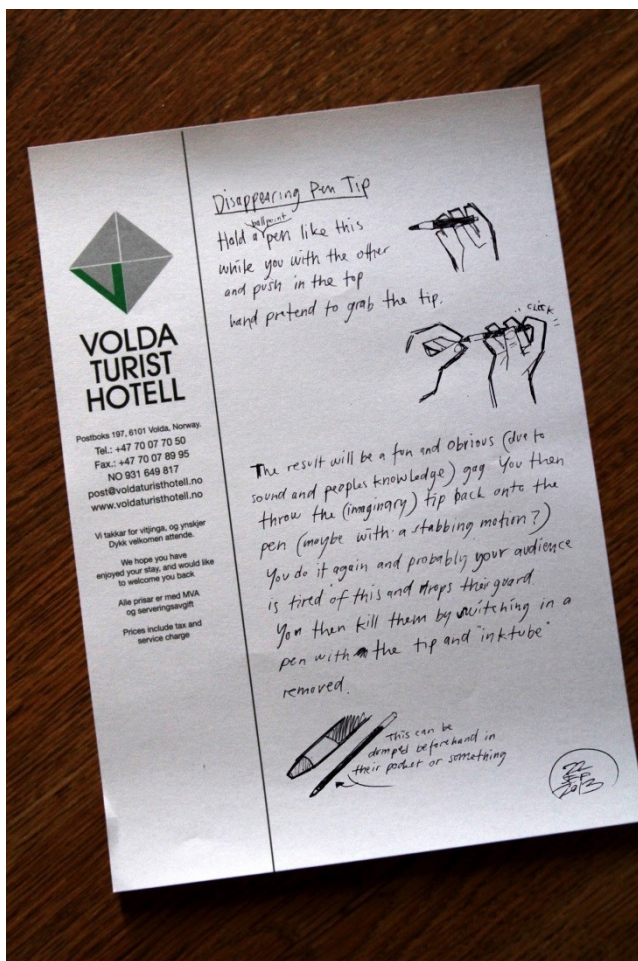 VOLDA
TURIST
HOTELL
Postboks 197, 6101 Volda, Norway.
Tel.: +47 70 07 70 50
Fax.: +47 70 07 89 95
NO 931 649 817
post@voldaturisthotell.no
www.voldaturisthotell.no
Vi takkar for vitjinga, og ynskjer
Dykk velkomen attende.
We hope you have
enjoyed your stay, and would like
to welcome you back
Alle prisar er med MVA
og serveringsavgift
Prices include tax and
service charge
Disappearing Pen Tip
ballpoint
Hold a pen like this
while you with the other
and push in the top
hand pretend to grab the tip.
CLICK
The result will be a fun and obvious (due to
sound and peoples knowledge) gag. You then
throw the (imaginary) tip back onto the
pen (maybe with a stabbing motion?)
You do it again and probably your audience
is tired of this and drops their guard.
You then kill them by switching in a
pen with the tip and "inktube"
removed.
This can be
dumped beforehand in
their pocket or something
22
2013